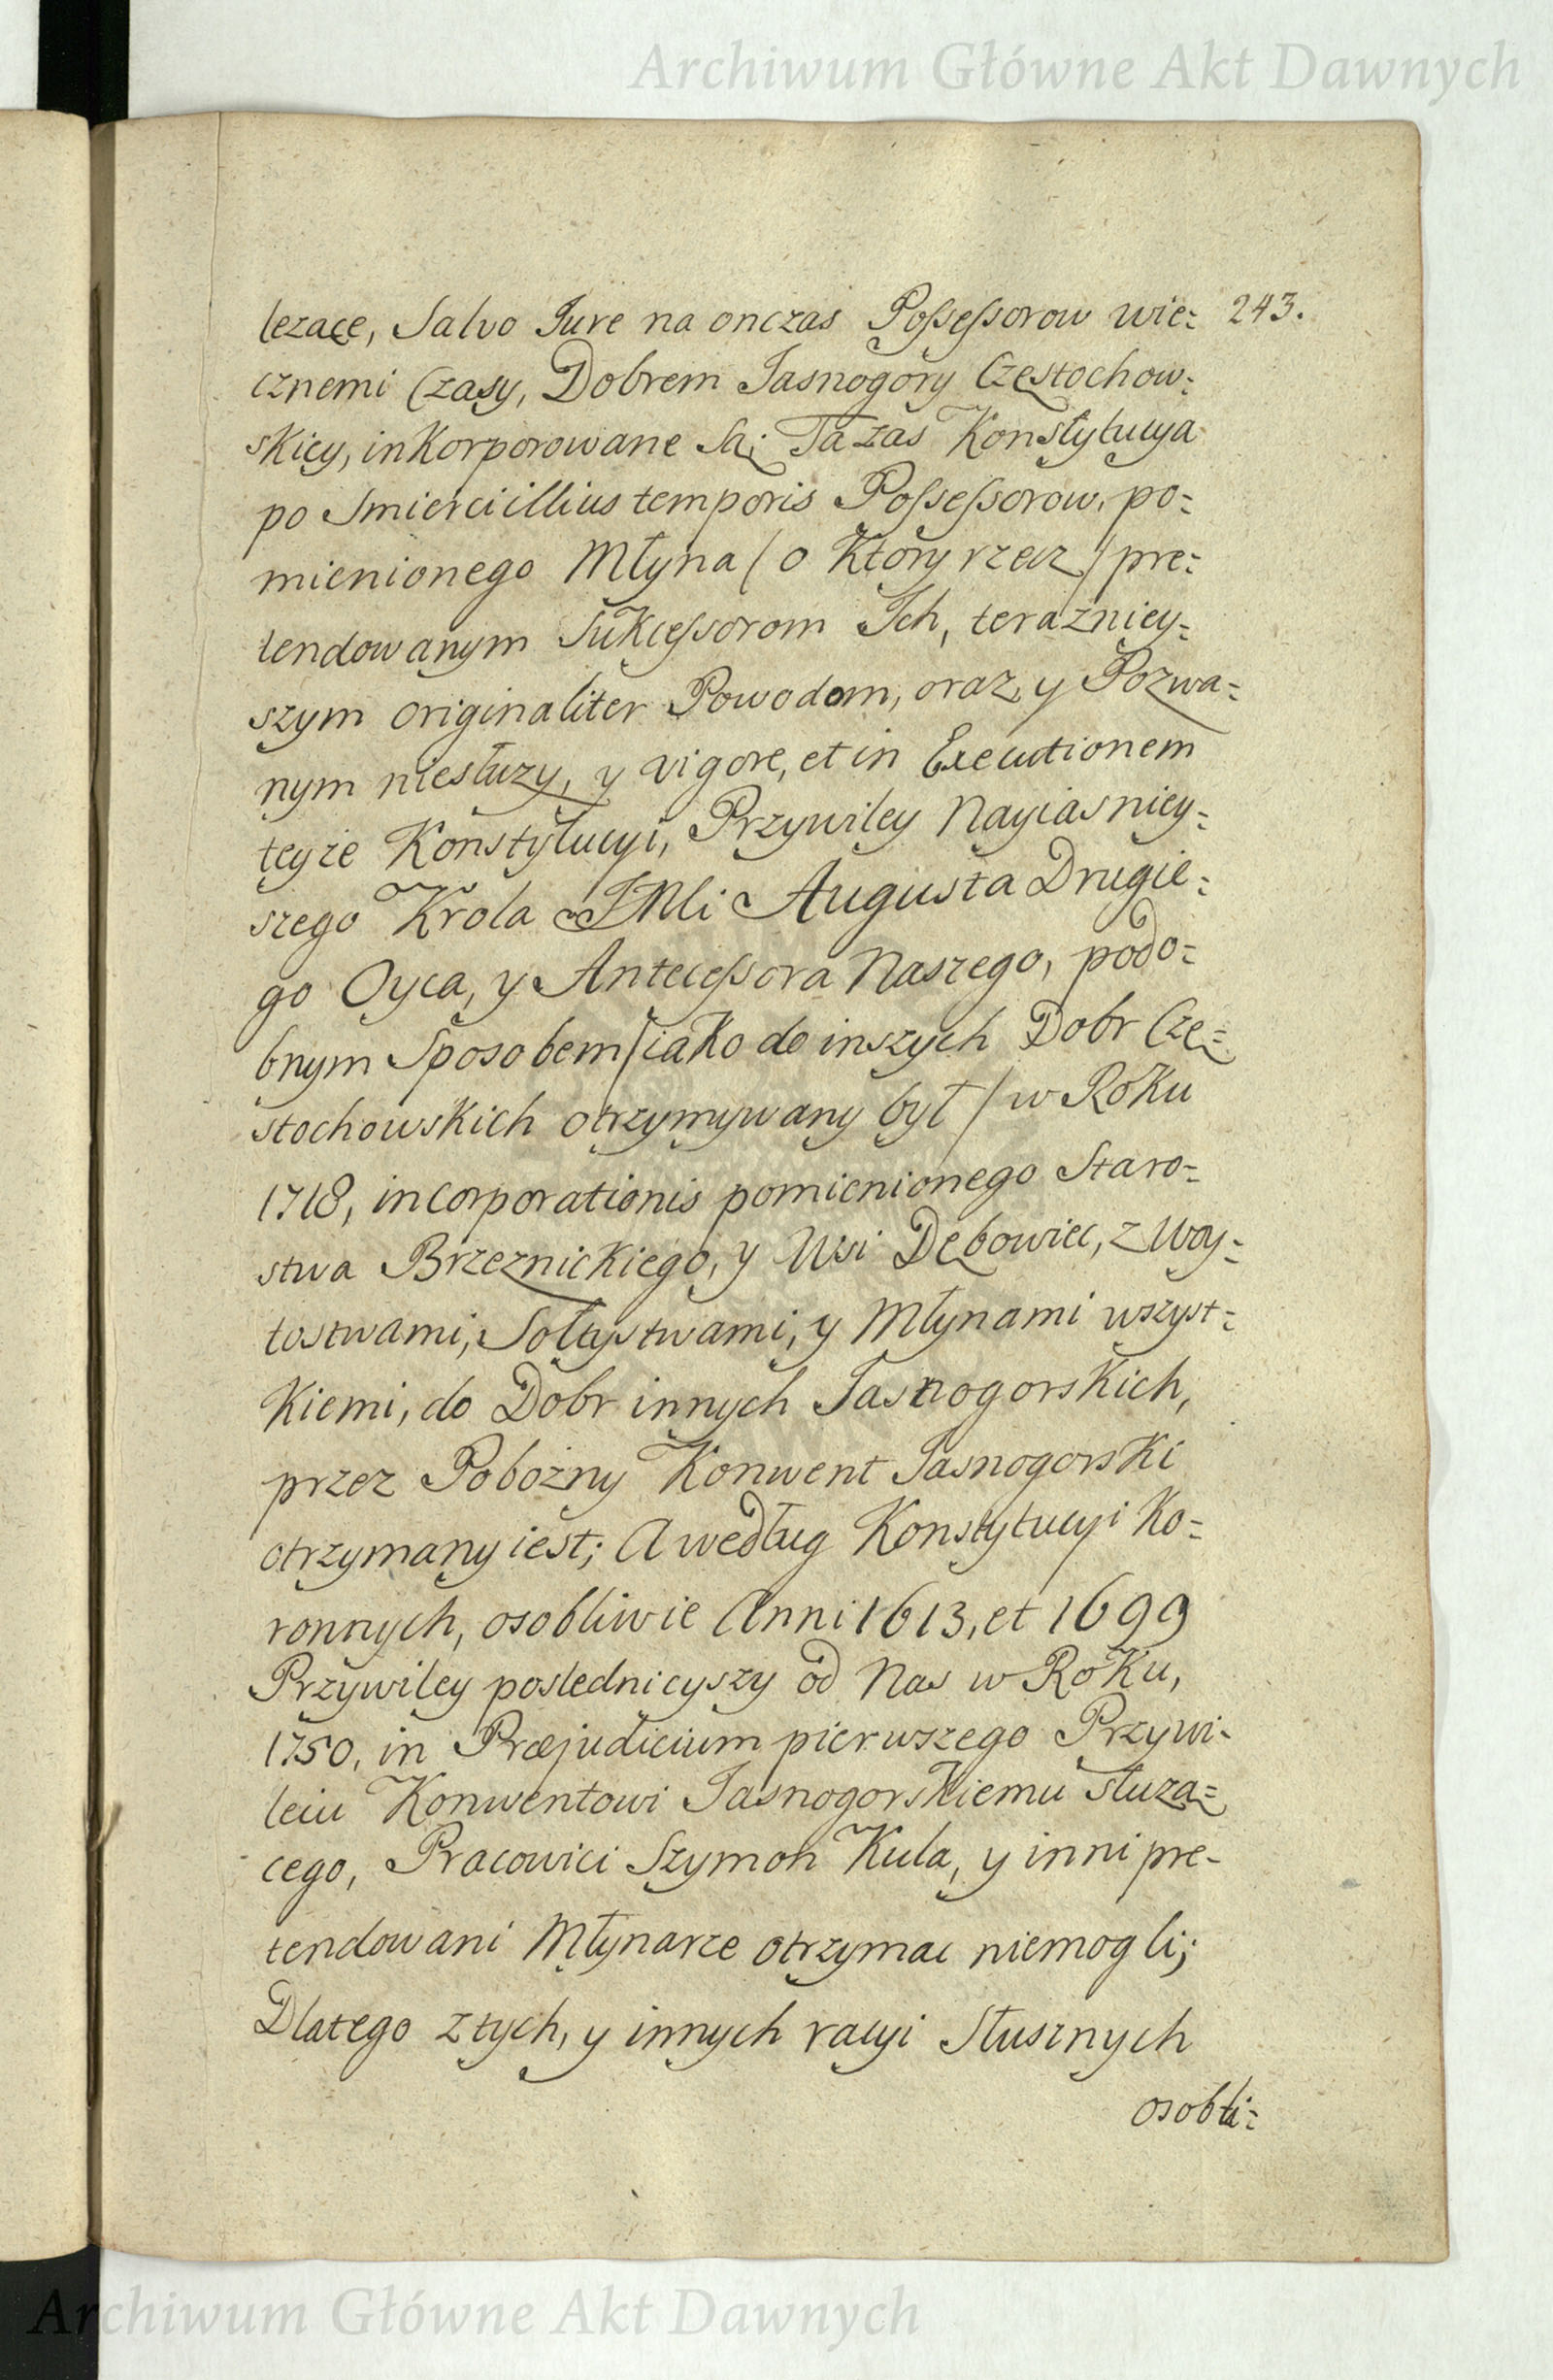 Archiwum Główne Akt Dawnych
lezące, Salvo Jure na onczas Possessorow wie: 243.
cznemi Czasy, Dobrem Jasnogory Częstochow:
skiey, inkorporowane Są; Ta zas Konstytucya
po Smierci illius temporis Possessorow, po:
mienionego Młyna / o Ktory rzecz / pre:
tendowanym Sukcessorom Jch, terazniey:
szym originaliter Powodom, oraz, y Pozwa:
nym niesłuzy, y vigore, et in Executionem
teyze Konstytucyi, Przywiley Nayiasniey:
szego Krola JMci Augusta Drugie:
go Oyca, y Antecessora Naszego, podo:
bnym Sposobem / iako do inszych Dobr Czę:
stochowskich otrzymywany był / w Roku
1718, incorporationis pomienionego Staro:
stwa Brzeznickiego, y Wsi Dębowiec, z Woy:
tostwami, Sołtystwami, y Młynami wszyst:
Kiemi, do Dobr innych Jasnogorskich,
przez Pobozny Konwent Jasnogorski
otrzymany iest; A według Konstytucyi Ko:
ronnych, osobliwie Anni 1613, et 1699
Przywiley poslednieyszy od Nas w Roku,
1750, in Præjudicium pierwszego Przywi:
leiu Konwentowi Jasnogorskiemu słuzą:
cego, Pracowici Szymon Kula, y inni pre-
tendowani Młynarze otrzymac niemogli;
Dlatego z tych, y innych racyi Słusznych
osobli:
Archiwum Główne Akt Dawnych